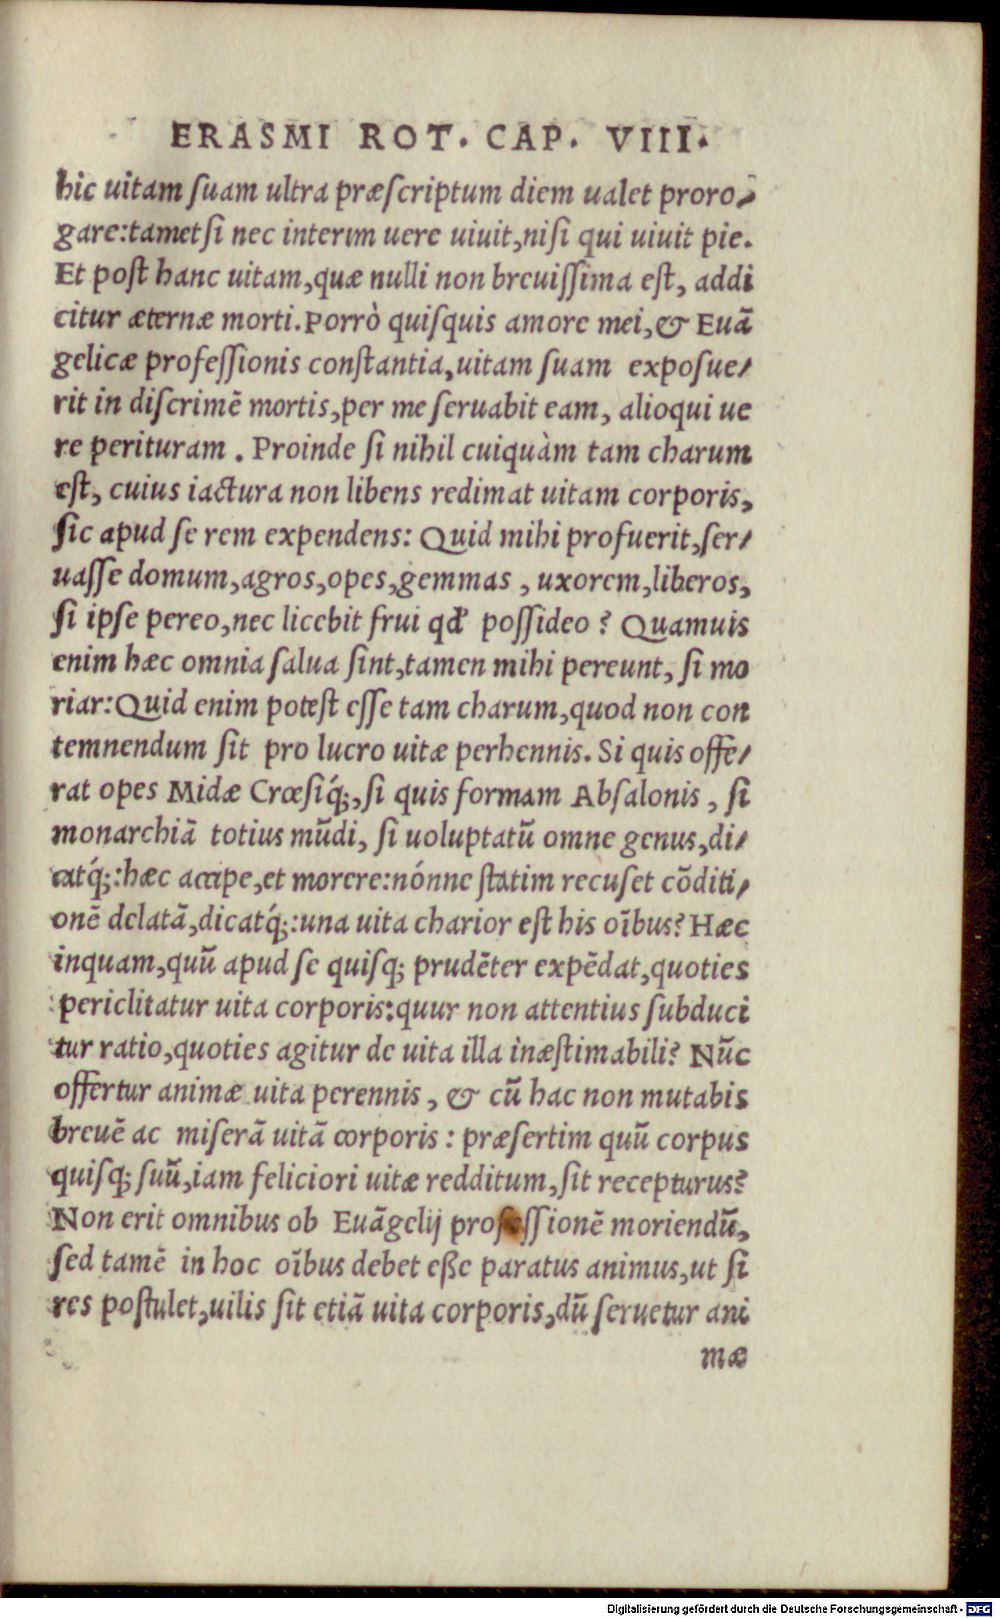 ERASMI ROT. CAP. VIII.
hic uitam ſuam ultra præſcriptum diem ualet proro⸗
gare:tametſi nec interim uere uiuit,niſi qui uiuit pie.
Et poſt hanc uitam,quæ nulli non breuiſſima eſt, addi
citur æternæ morti.Porrò quiſquis amore mei,& Euā
gelicæ profeſſionis conſtantia,uitam ſuam expoſue⸗
rit in diſcrimē mortis,per me ſeruabit eam, alioqui ue
re perituram . Proinde ſi nihil cuiquàm tam charum
eſt, cuius iactura non libens redimat uitam corporis,
ſic apud ſe rem expendens: Quid mihi profuerit,ſer⸗
uaſſe domum,agros,opes,gemmas , uxorem,liberos,
ſi ipſe pereo,nec licebit frui qđ poſſideo ? Quamuis
enim hæc omnia ſalua ſint,tamen mihi pereunt, ſi mo
riar:Quid enim poteſt eſſe tam charum,quod non con
temnendum ſit pro lucro uitæ perhennis. Si quis offe⸗
rat opes Midæ Crœſiq́;,ſi quis formam Abſalonis , ſi
monarchiā totius mūdi, ſi uoluptatū omne genus,di⸗
catq́;:hæc accipe,et morere:nónne ſtatim recuſet cōditi⸗
onē delatā,dicatq́;:una uita charior eſt his oībus? Hæc
inquam,quū apud ſe quiſq; prudēter expēdat,quoties
periclitatur uita corporis:quur non attentius ſubduci
tur ratio,quoties agitur de uita illa inæſtimabili? Nūc
offertur animæ uita perennis , & cū hac non mutabis
breuē ac miſerā uitā corporis : præſertim quū corpus
quiſq; ſuū,iam feliciori uitæ redditum,ſit recepturus?
Non erit omnibus ob Euāgelij profeſſionē moriendū,
ſed tamē in hoc oībus debet eße paratus animus,ut ſi
res poſtulet,uilis ſit etiā uita corporis,dū ſeruetur ani
mæ
Digitalisierung gefördert durch die Deutsche Forschungsgemeinschaft - DFG